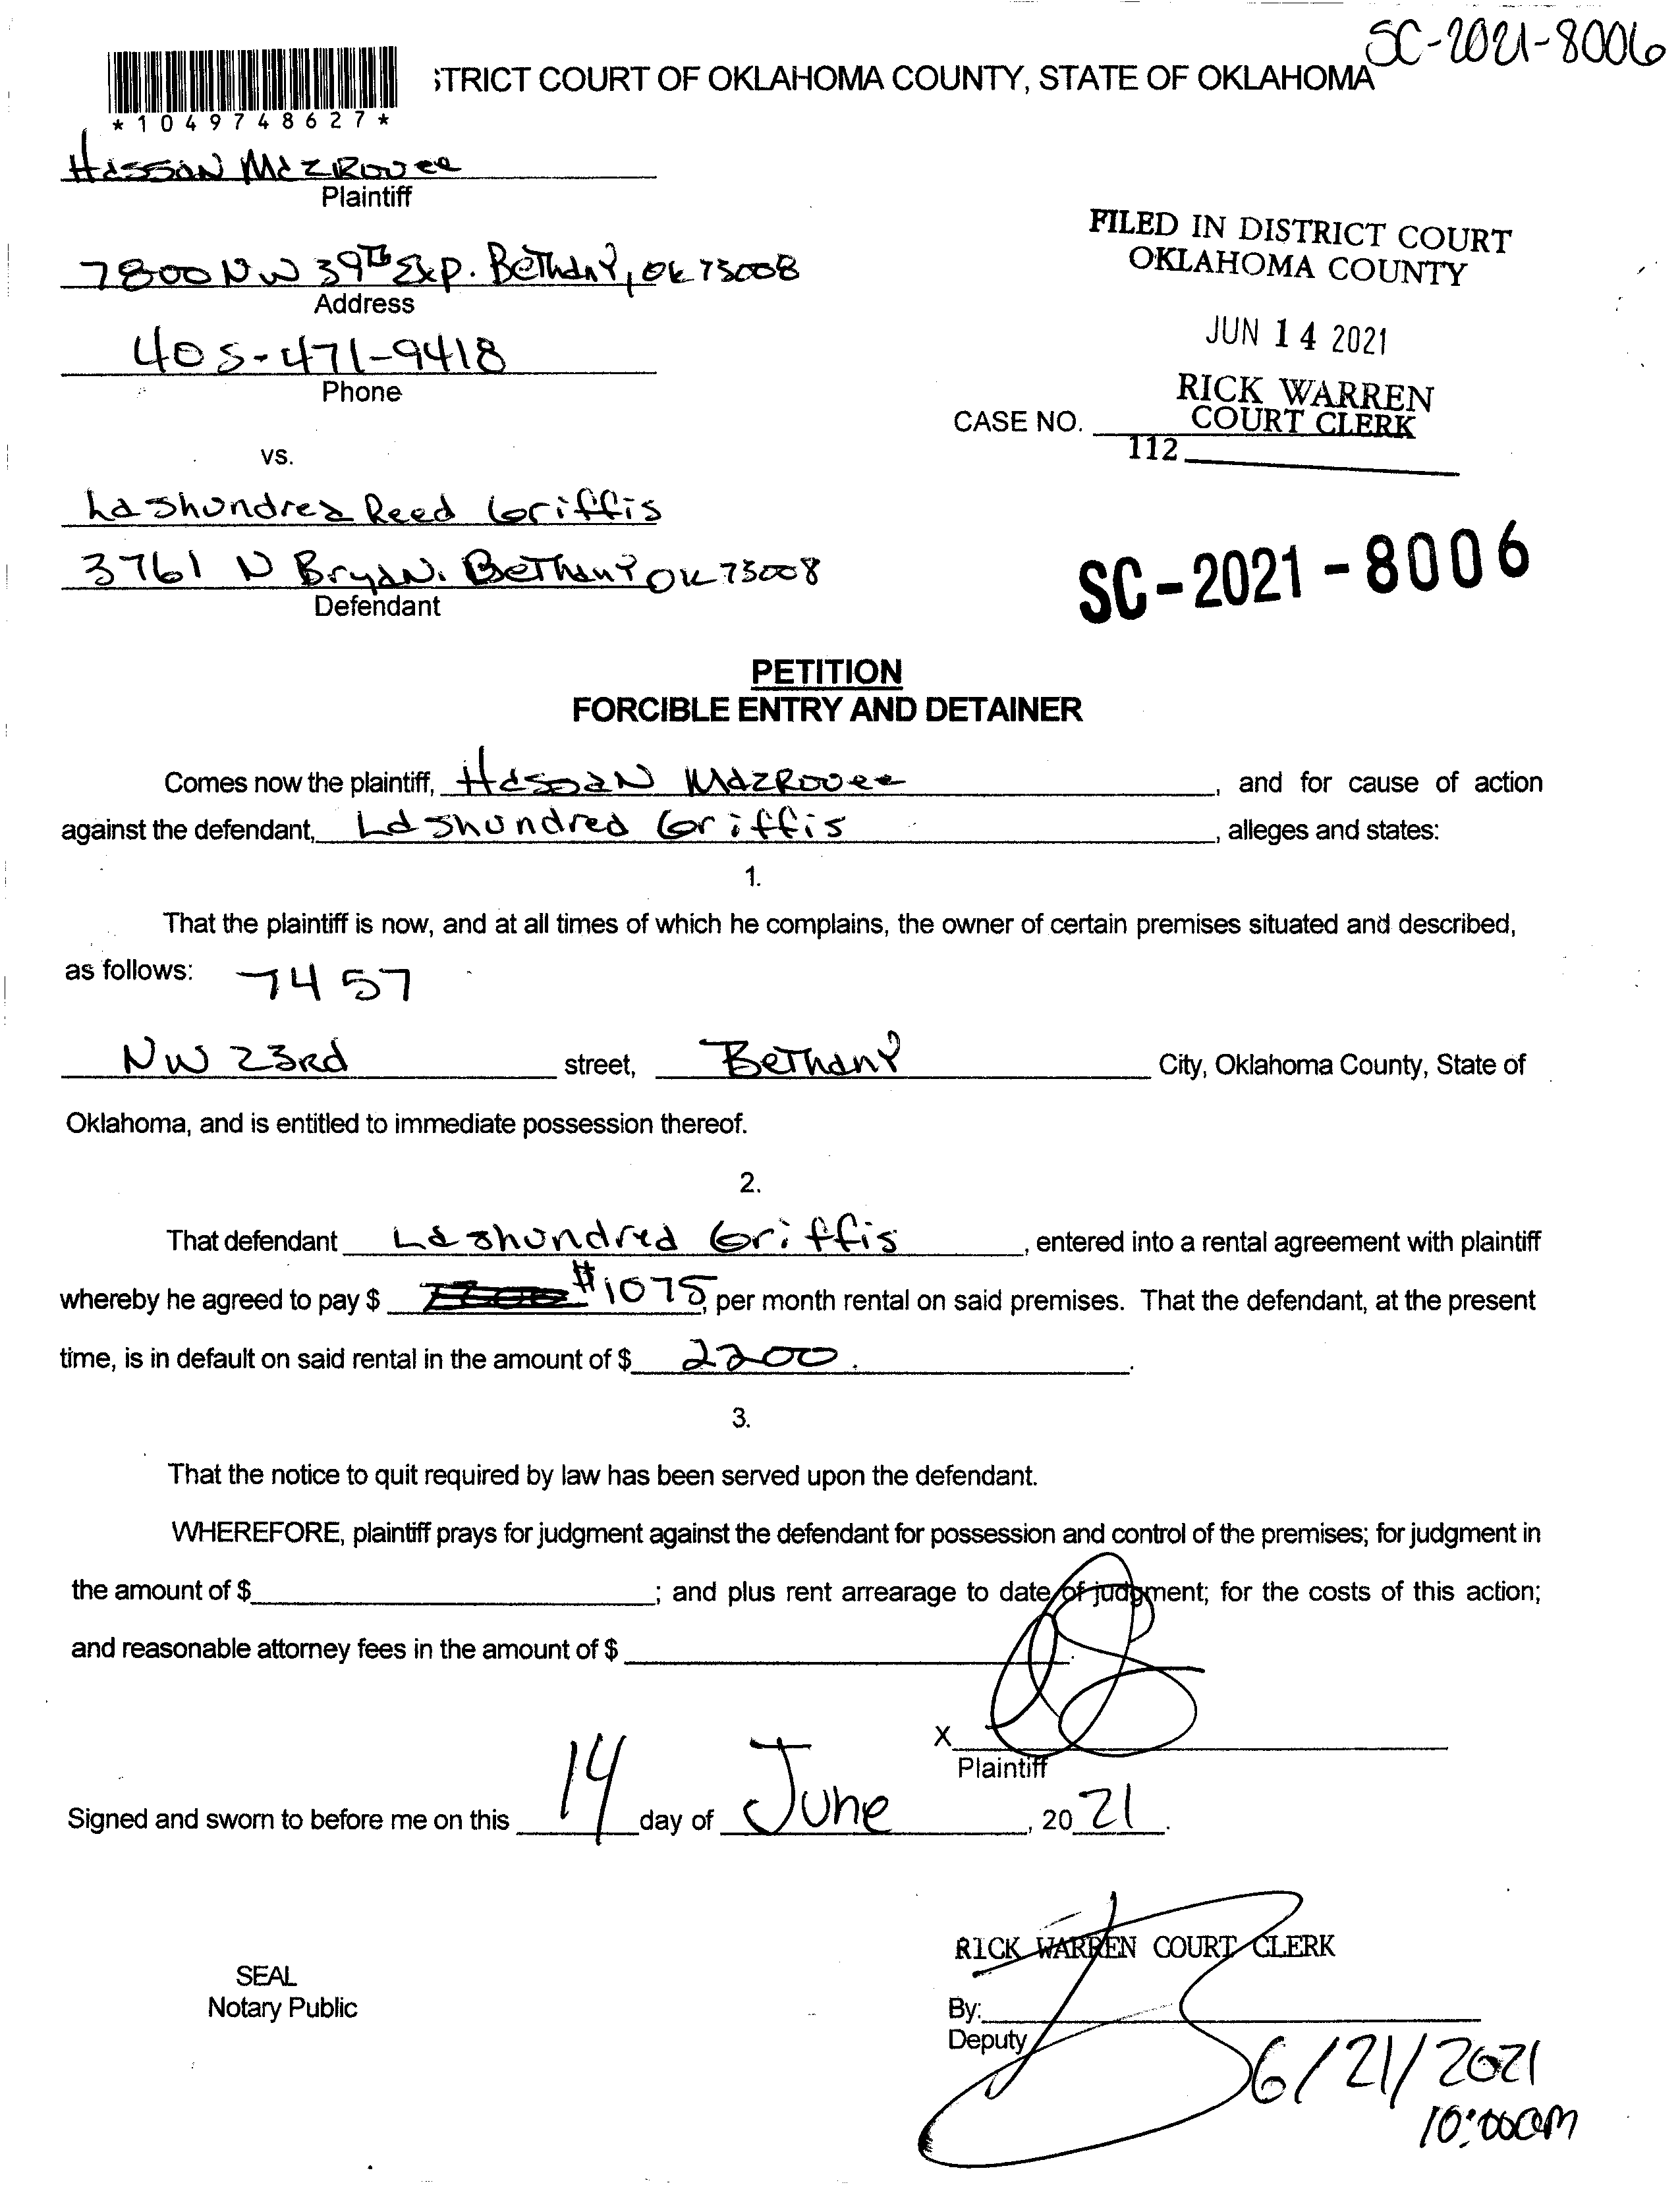 SC-2021-8006
*1049748627*
STRICT COURT OF OKLAHOMA COUNTY, STATE OF OKLAHOMA
HassaN MazRouee
Plaintiff
7800 NW 39Th Exp. BeThanY, OK 73008
Address
405-471-9418
Phone
FILED IN DISTRICT COURT
OKLAHOMA COUNTY
JUN 14 2021
RICK WARREN
COURT CLERK
CASE NO.
112
vs.
Lashundrea Reed Griffis
3761 N BryaN. BeThanY OK 73008
Defendant
SC-2021-8006
PETITION
FORCIBLE ENTRY AND DETAINER
Comes now the plaintiff, HassaN MazRouee, and for cause of action
against the defendant, Lashundrea Griffis, alleges and states:
1.
That the plaintiff is now, and at all times of which he complains, the owner of certain premises situated and described,
as follows: 7457
NW 23Rd street, BeThanY City, Oklahoma County, State of
Oklahoma, and is entitled to immediate possession thereof.
2.
That defendant Lashundrea Griffis, entered into a rental agreement with plaintiff
whereby he agreed to pay $ $1075, per month rental on said premises. That the defendant, at the present
time, is in default on said rental in the amount of $ 2200.
3.
That the notice to quit required by law has been served upon the defendant.
WHEREFORE, plaintiff prays for judgment against the defendant for possession and control of the premises; for judgment in
the amount of $ ; and plus rent arrearage to date of judgment; for the costs of this action;
and reasonable attorney fees in the amount of $ .
X
Plaintiff
Signed and sworn to before me on this 14 day of June, 20 21.
RICK WARREN COURT CLERK
SEAL
Notary Public
By:
Deputy
6/21/2021
10:00am